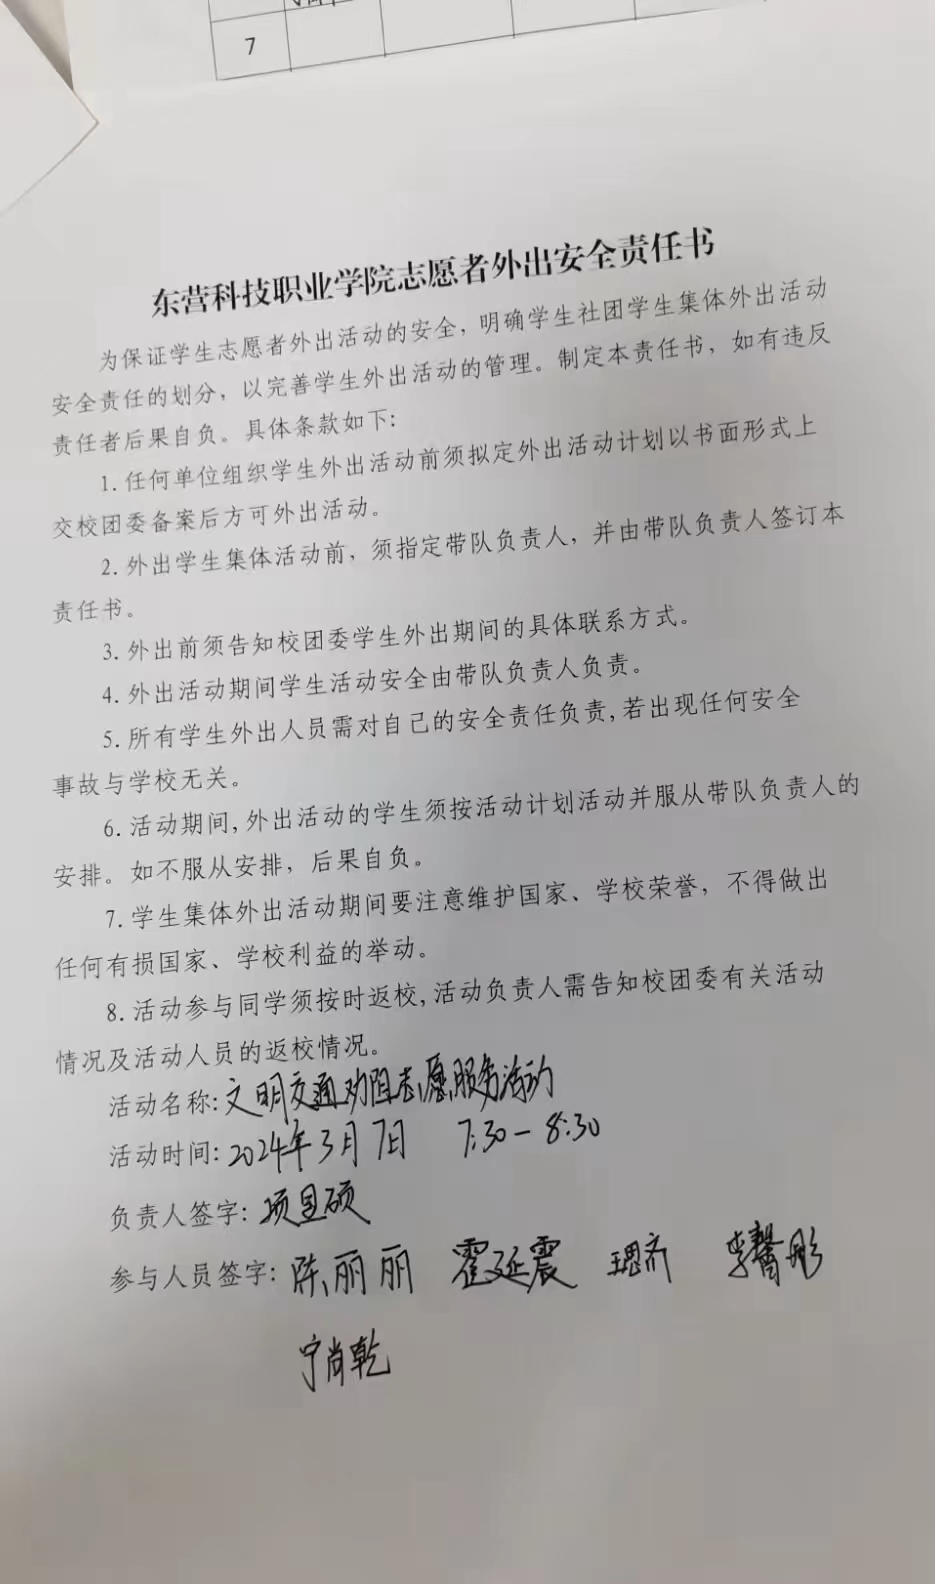 7
东营科技职业学院志愿者外出安全责任书
为保证学生志愿者外出活动的安全，明确学生社团学生集体外出活动
安全责任的划分，以完善学生外出活动的管理。制定本责任书，如有违反
责任者后果自负。具体条款如下：
1.任何单位组织学生外出活动前须拟定外出活动计划以书面形式上
交校团委备案后方可外出活动。
2.外出学生集体活动前，须指定带队负责人，并由带队负责人签订本
责任书。
3.外出前须告知校团委学生外出期间的具体联系方式。
4.外出活动期间学生活动安全由带队负责人负责。
5.所有学生外出人员需对自己的安全责任负责,若出现任何安全
事故与学校无关。
6.活动期间,外出活动的学生须按活动计划活动并服从带队负责人的
安排。如不服从安排，后果自负。
7.学生集体外出活动期间要注意维护国家、学校荣誉，不得做出
任何有损国家、学校利益的举动。
8.活动参与同学须按时返校,活动负责人需告知校团委有关活动
情况及活动人员的返校情况。
活动名称:文明交通劝阻志愿服务活动
活动时间:2024年3月7日 7:30-8:30
负责人签字:项昱硕
参与人员签字:陈丽丽 霍延震 李馨彤
宁尚乾